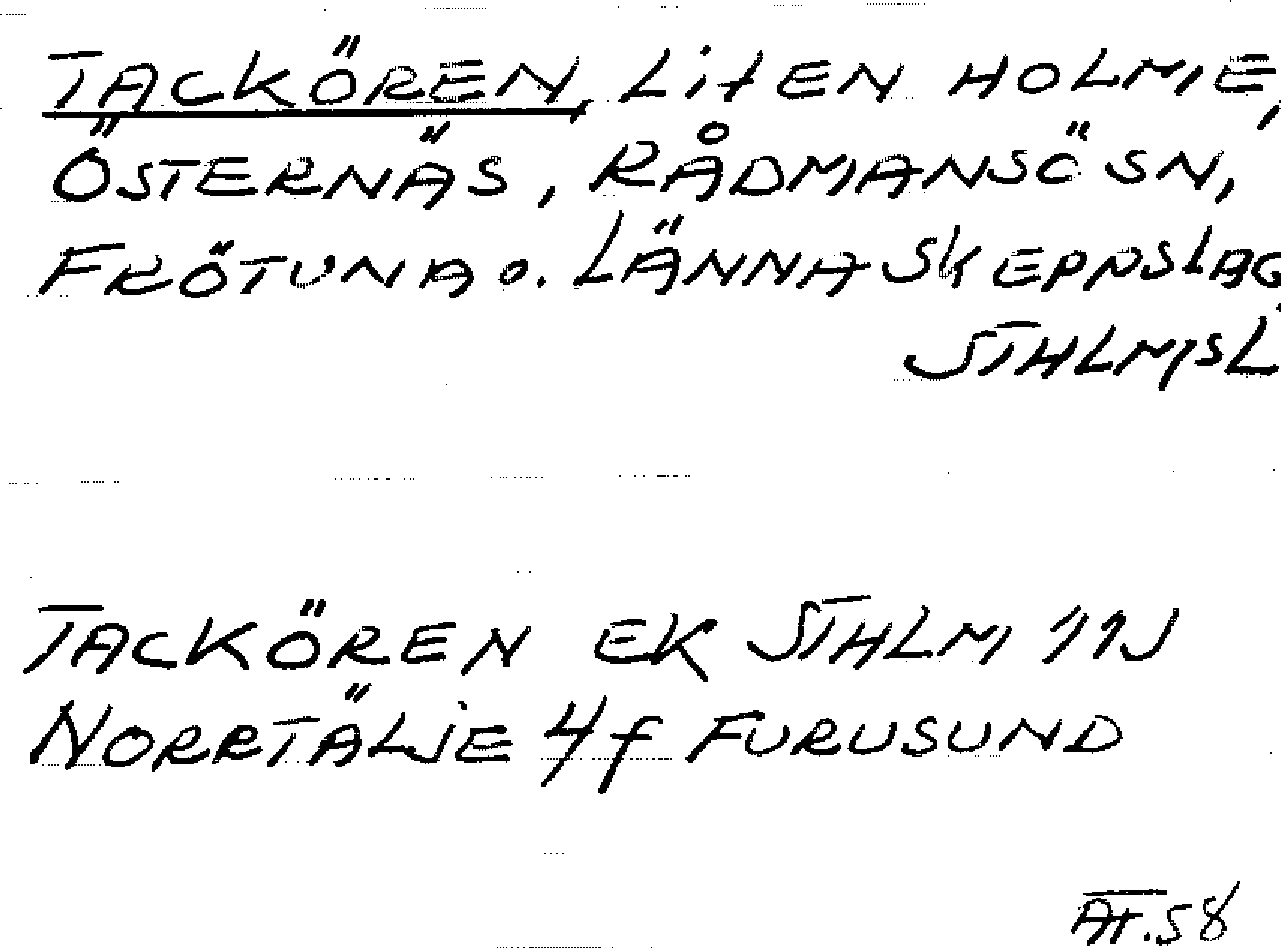 TACKÖREN, LitEN HOLME,
ÖSTERNÄS, RÅDMANSÖ SN,
FRÖTUNA o. LÄNNA SKEPPSLAG
STHLMSL
TACKÖREN EK STHLM 11J
NORRTÄLJE 4f FURUSUND
AT.58